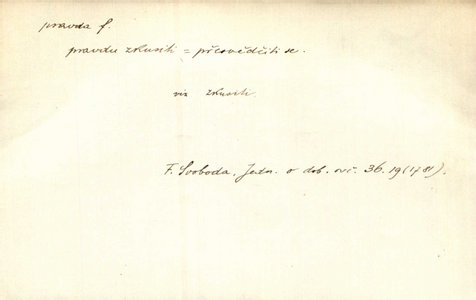 pravda f.
pravdu zkusiti = přesvědčiti se.
viz zkusiti.
F. Svoboda. Jedn. o dob. ovč. 36.19 (1781).